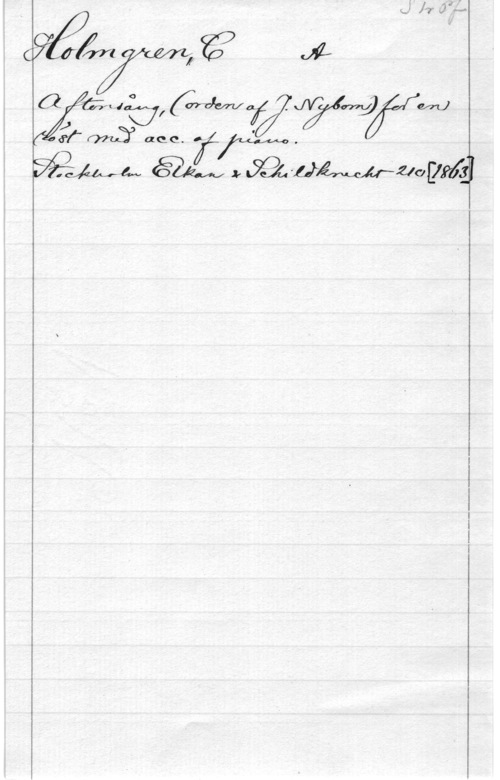 Holmgren, C A
Aftonsång, (orden af J. Nybom) för en
röst med acc. af piano.
Stockholm Elkan & Schildknecht 210 [1863]